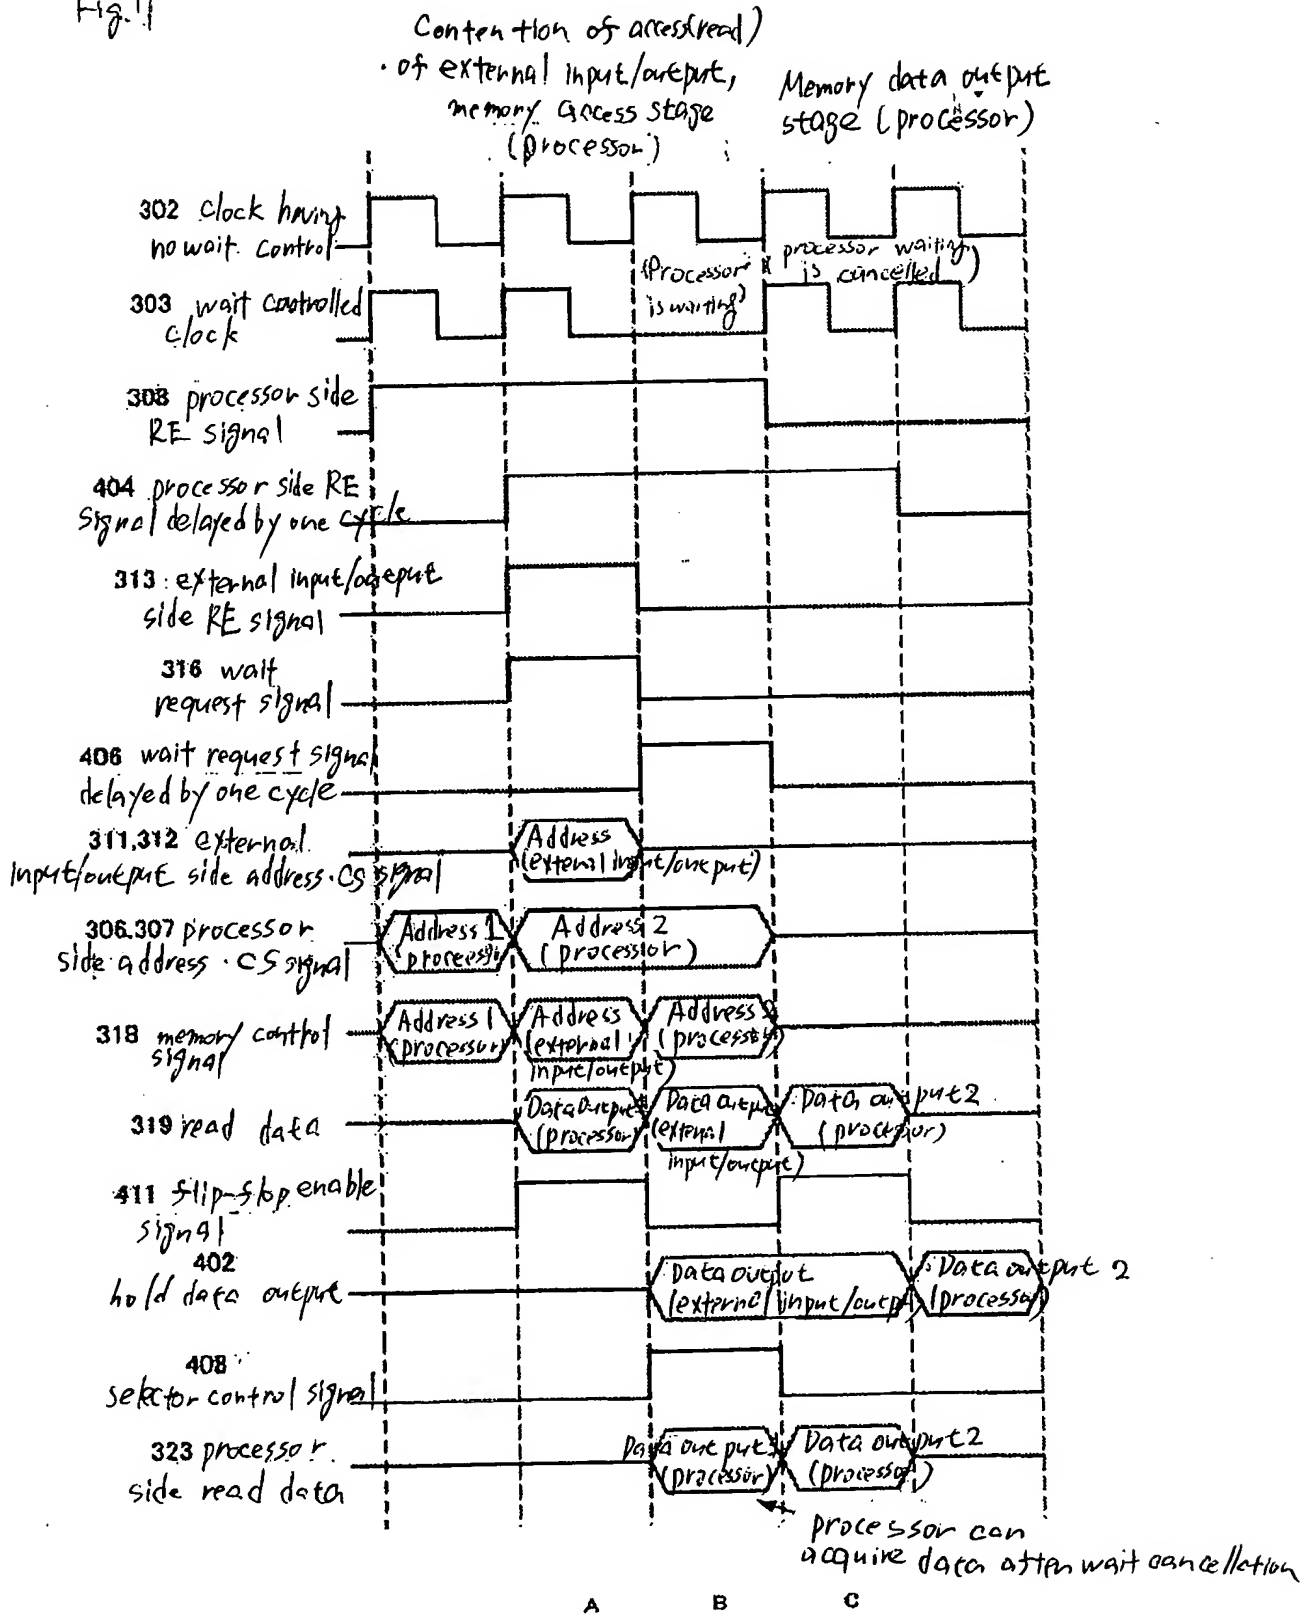 Fig. 11
Contention of access(read)
of external input/output,
memory access stage
(processor)
Memory data output
stage (processor)
302 clock having
no wait control
(Processor
is waiting)
processor waiting
is cancelled)
303 wait controlled
clock
303 processor side
RE signal
404 processor side RE
signal delayed by one cycle
313 external input/output
side RE signal
316 wait
request signal
406 wait request signal
delayed by one cycle
311,312 external
input/output side address.CS signal
Address
(external input/output)
306.307 processor
side address.CS signal
Address 1
(processor
Address 2
(processor)
318 memory control
signal
Address 1
(processor)
Address
(external
input/output)
Address 2
(processor)
319 read data
Data output
(processor)
Data output
(external
input/output)
Data output 2
(processor)
411 flip-flop enable
signal
402
hold data output
Data output
(external input/output)
Data output 2
(processor)
408
selector control signal
323 processor
side read data
Data output
(processor)
Data output 2
(processor)
processor can
acquire data after wait cancellation
A B C